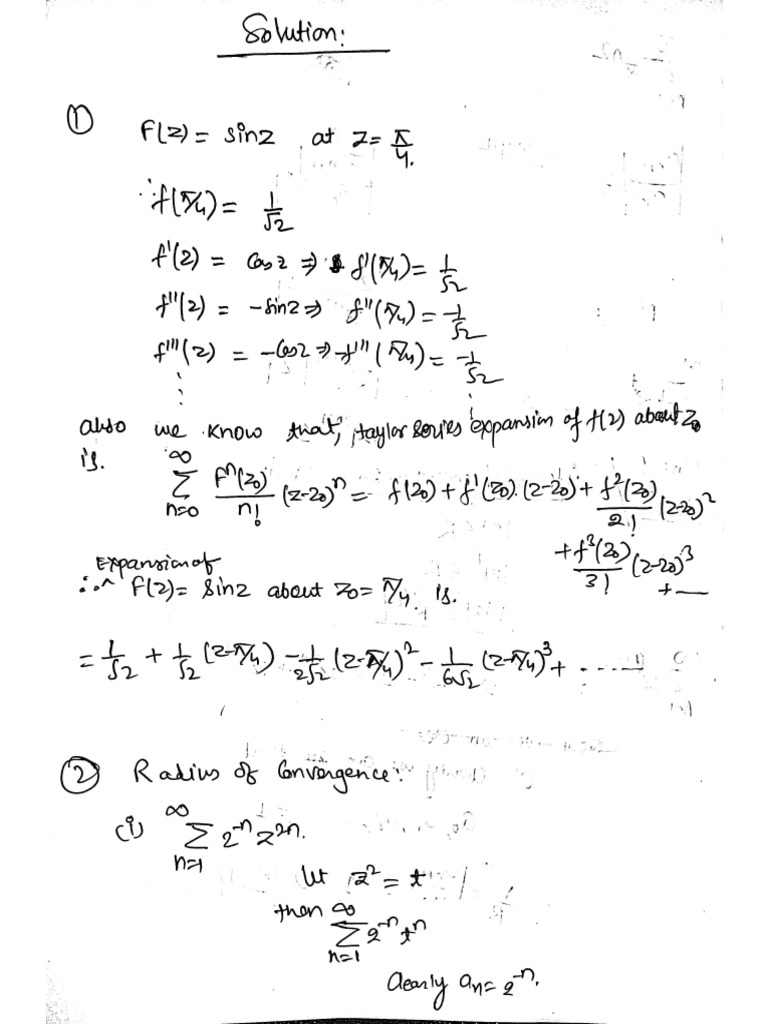 Solution:
① f(z) = sinz at z = π/4.
∴ f(π/4) = 1/√2
f'(z) = cosz ⇒ f'(π/4) = 1/√2
f''(z) = -sinz ⇒ f''(π/4) = -1/√2
f'''(z) = -cosz ⇒ f'''(π/4) = -1/√2
⋮ ⋮
also we know that, taylor series expansion of f(z) about z₀
is.
∞ Σ n=0 fⁿ(z₀)/n! (z-z₀)ⁿ = f(z₀) + f'(z₀).(z-z₀) + f²(z₀)/2! (z-z₀)²
+ f³(z₀)/3! (z-z₀)³ + —
∴ Expansion of f(z) = sinz about z₀ = π/4 is.
= 1/√2 + 1/√2 (z-π/4) - 1/2√2 (z-π/4)² - 1/6√2 (z-π/4)³ + .....
② Radius of Convergence:
(i) ∞ Σ n=1 2⁻ⁿ z²ⁿ.
let z² = t
then ∞ Σ n=1 2⁻ⁿ tⁿ
clearly aₙ = 2⁻ⁿ.